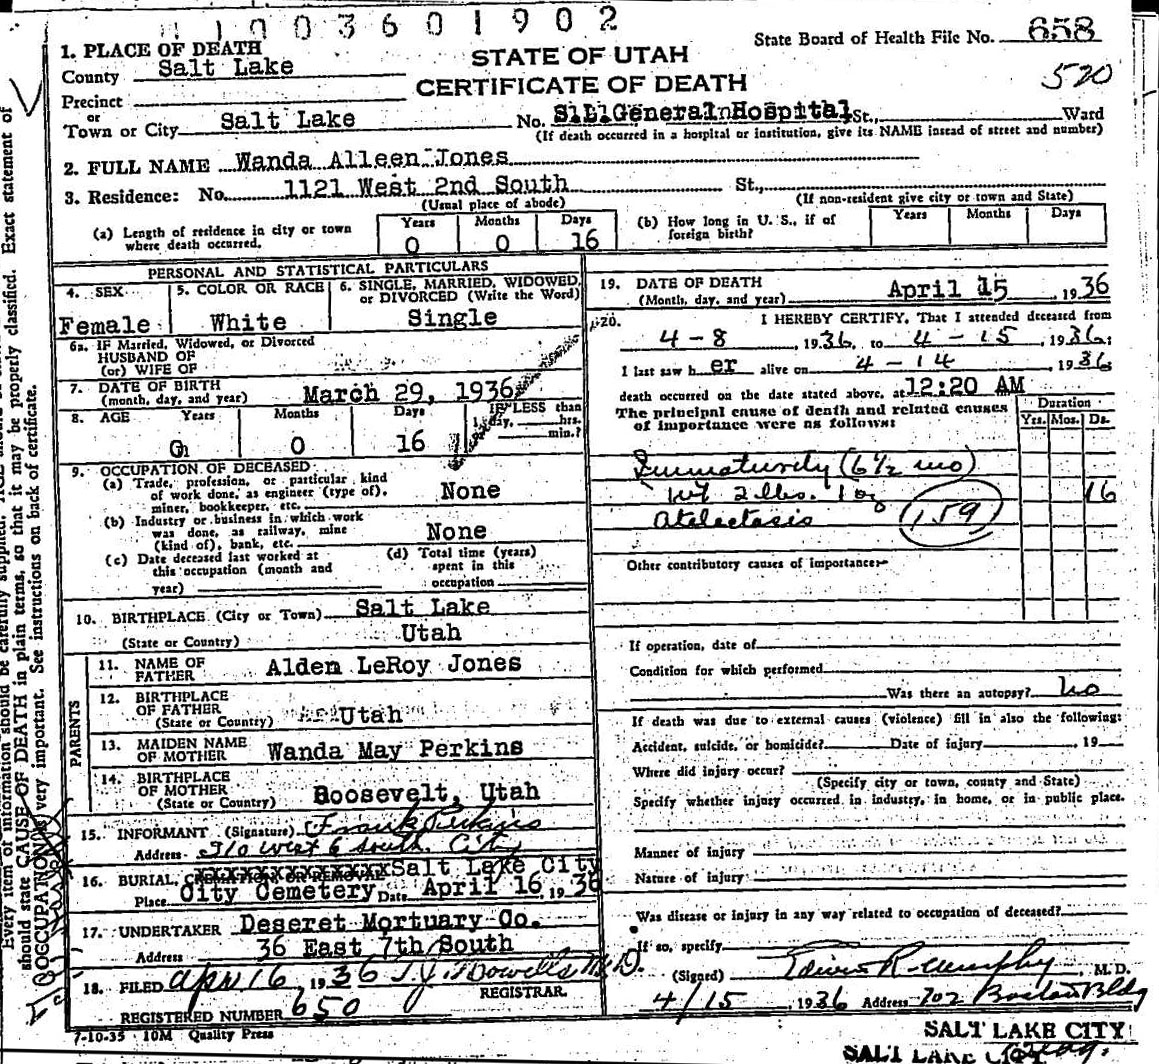 1003601902
1. PLACE OF DEATH
STATE OF UTAH
State Board of Health File No. 658
County Salt Lake
CERTIFICATE OF DEATH
520
Precinct
or
Town or City Salt Lake No. S.L. General Hospital St., Ward
(If death occurred in a hospital or institution, give its NAME insead of street and number)
2. FULL NAME Wanda Alleen Jones
3. Residence: No. 1121 West 2nd South St.,
(Usual place of abode) (If non-resident give city or town and State)
(a) Length of residence in city or town where death occurred. Years 0 Months 0 Days 16
(b) How long in U. S., if of foreign birth? Years Months Days
PERSONAL AND STATISTICAL PARTICULARS
4. SEX Female
5. COLOR OR RACE White
6. SINGLE, MARRIED, WIDOWED, or DIVORCED (Write the Word) Single
6a. IF Married, Widowed, or Divorced
HUSBAND OF
(or) WIFE OF
7. DATE OF BIRTH
(month, day, and year) March 29, 1936
8. AGE Years 0 Months 0 Days 16 IF LESS than
1 day, hrs.
min.?
9. OCCUPATION OF DECEASED
(a) Trade, profession, or particular kind
of work done, as engineer (type of),
miner, bookkeeper, etc. None
(b) Industry or business in which work
was done, as railway, mine
(kind of), bank, etc. None
(c) Date deceased last worked at
this occupation (month and
year)
(d) Total time (years)
spent in this
occupation
10. BIRTHPLACE (City or Town) Salt Lake
(State or Country) Utah
PARENTS
11. NAME OF
FATHER Alden LeRoy Jones
12. BIRTHPLACE
OF FATHER
(State or Country) Utah
13. MAIDEN NAME
OF MOTHER Wanda May Perkins
14. BIRTHPLACE
OF MOTHER
(State or Country) Roosevelt, Utah
15. INFORMANT (Signature) Frank Perkins
Address 310 West 6 South. City
16. BURIAL, CREMATION OR REMOVAL Salt Lake City
Place City Cemetery Date April 16, 1936
17. UNDERTAKER Deseret Mortuary Co.
Address 36 East 7th South
18. FILED Apr 16, 1936 T.J. Howells M.D.
REGISTRAR.
REGISTERED NUMBER 650
7-10-35 10M Quality Press
19. DATE OF DEATH
(Month, day, and year) April 15, 1936
20. I HEREBY CERTIFY, That I attended deceased from
4-8, 1936, to 4-15, 1936;
I last saw her alive on 4-14, 1936
death occurred on the date stated above, at 12:20 AM
The principal cause of death and related causes
of importance were as follows:
Duration
Yrs. Mos. Ds.
Immaturity (6½ mo)
wt 2 lbs. 1 oz 16
Atelectasis 159
Other contributory causes of importance:
If operation, date of
Condition for which performed
Was there an autopsy? No
If death was due to external causes (violence) fill in also the following:
Accident, suicide, or homicide? Date of injury 19
Where did injury occur?
(Specify city or town, county and State)
Specify whether injury occurred in industry, in home, or in public place.
Manner of injury
Nature of injury
Was disease or injury in any way related to occupation of deceased?
If so, specify
(Signed) Murphy, M. D.
4/15 1936 Address 702 Boston Bldg
SALT LAKE CITY
SALT LAKE CITY
Every item of information should be carefully supplied.
should state CAUSE OF DEATH in plain terms, so that it may be properly classified. Exact statement of
OCCUPATION is very important. See instructions on back of certificate.